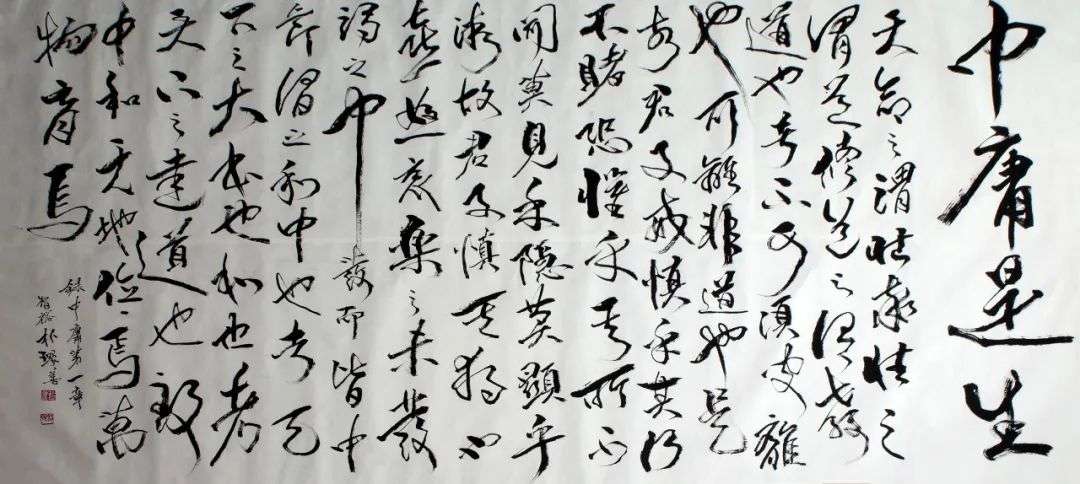 中庸是生
天命之謂性率性之
謂道修道之謂教
道也者不可須臾離
也可離非道也是
故君子戒慎乎其所
不睹恐懼乎其所不
聞莫見乎隱莫顯乎
微故君子慎其独也
喜怒哀樂之未發
謂之中發而皆中
節謂之和中也者天
下之大本也和也者
天下之達道也致
中和天地位焉萬
物育焉
録中庸第一章